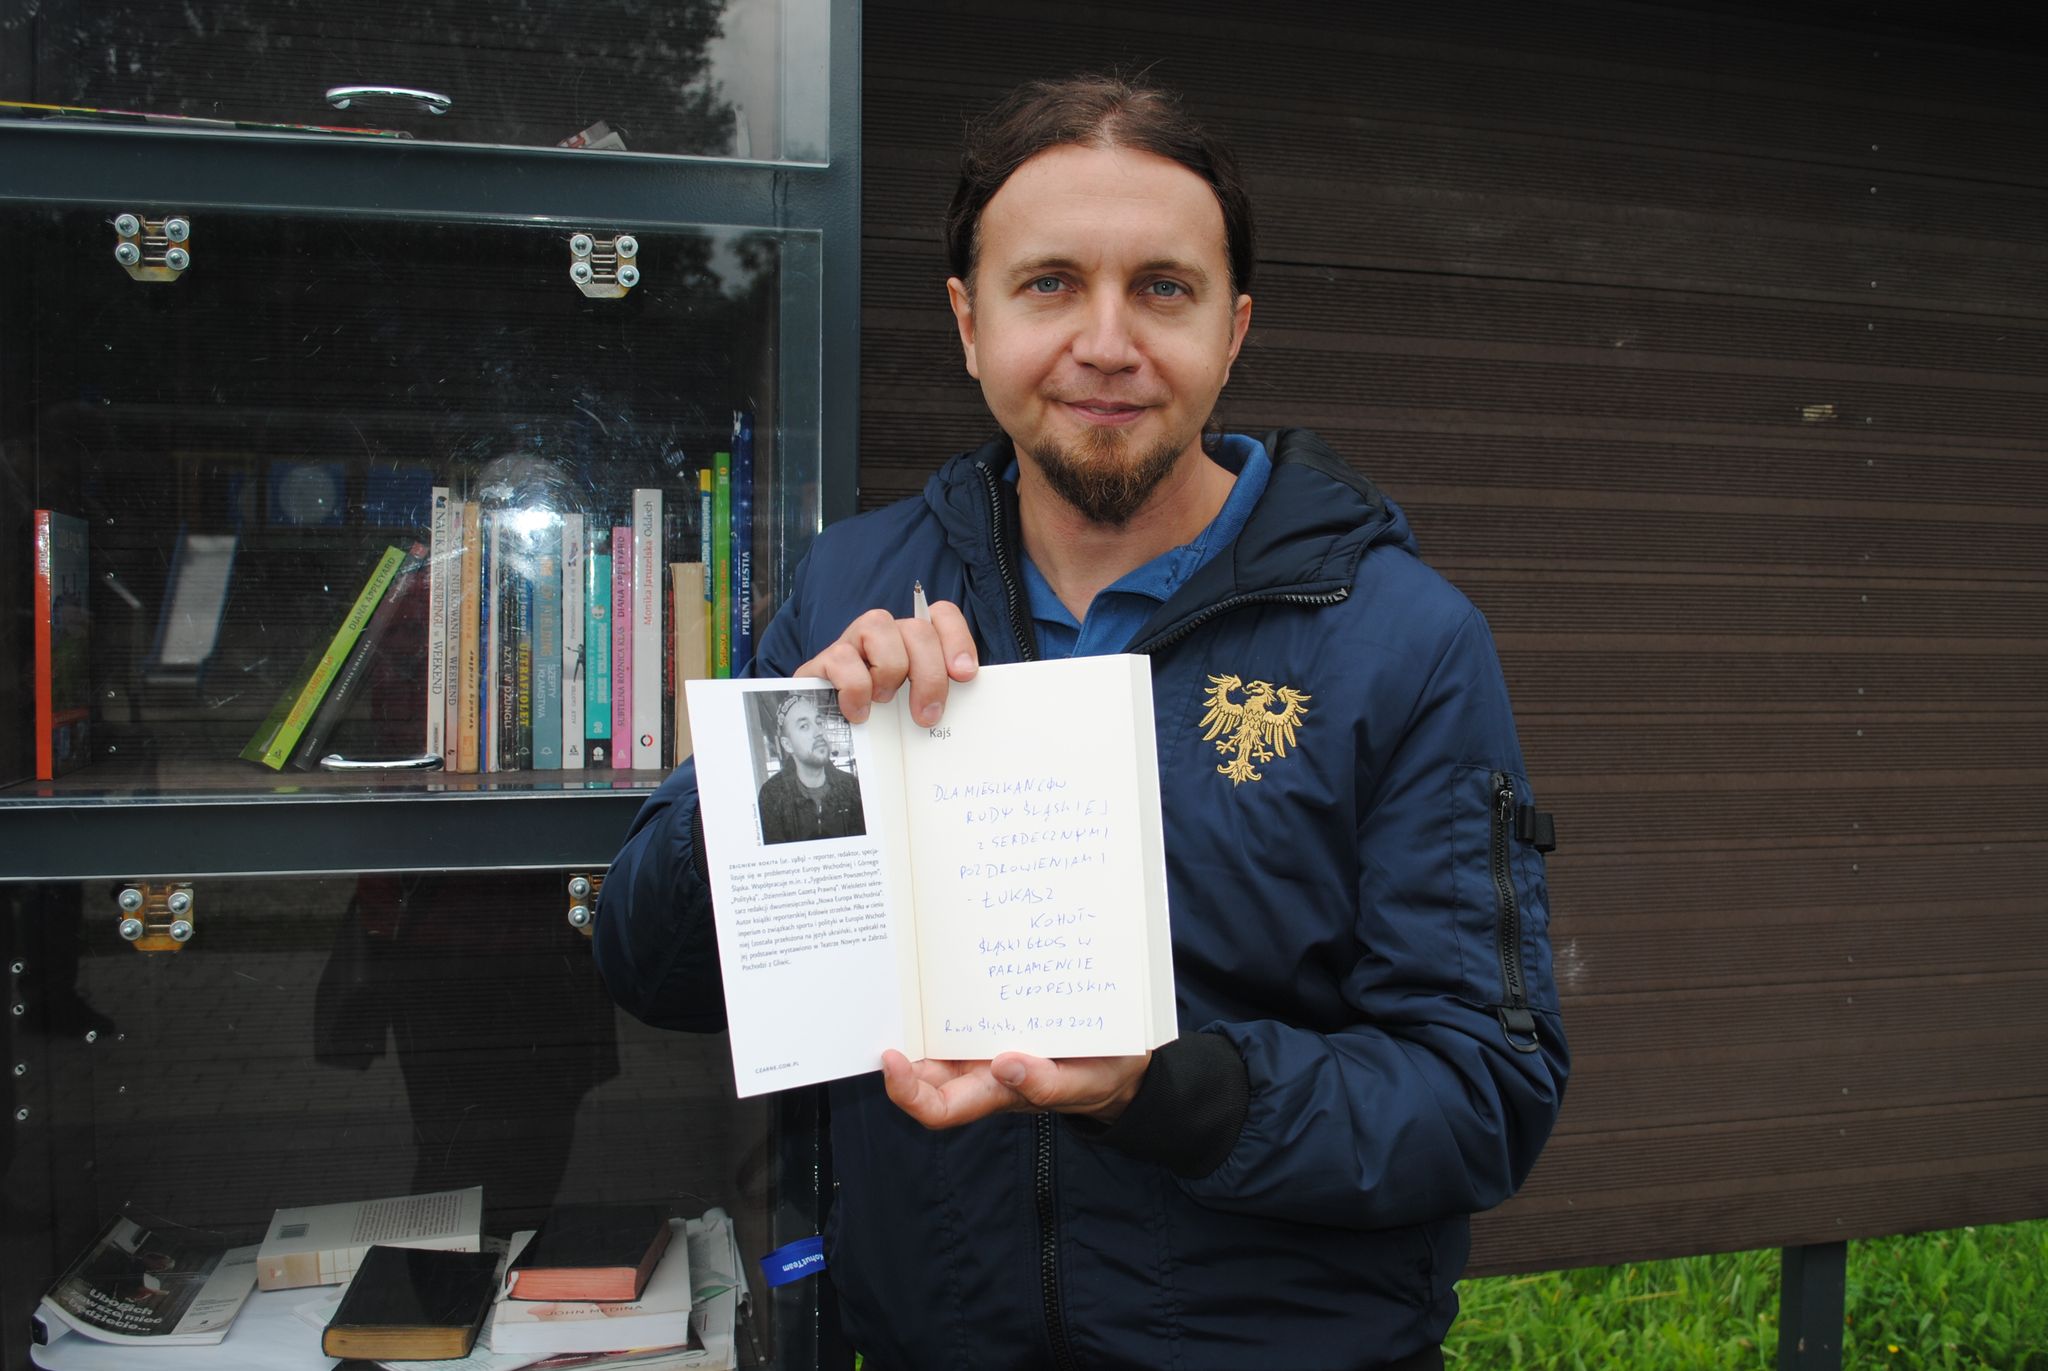 NAUKA WINDSURFINGU w WEEKEND
NAUKA NURKOWANIA w WEEKEND
Arkady Fiedler
ULTRAFIOLET
AZYL W DŻUNGLI
SZEPTY I KŁAMSTWA
DIANA APPLEYARD
SUBTELNA RÓŻNICA KLAS DIANA APPLEYARD
Monika Jaruzelska Oddech
PIĘKNA I BESTIA
ZBIGNIEW ROKITA (ur. 1989) – reporter, redaktor, specja-
lizuje się w problematyce Europy Wschodniej i Górnego
Śląska. Współpracuje m.in. z „Tygodnikiem Powszechnym",
„Polityką", „Dziennikiem Gazetą Prawną". Wieloletni sekre-
tarz redakcji dwumiesięcznika „Nowa Europa Wschodnia".
Autor książki reporterskiej Królowie strzelców. Piłka w cieniu
imperium o związkach sportu i polityki w Europie Wschod-
niej (została przełożona na język ukraiński, a spektakl na
jej podstawie wystawiono w Teatrze Nowym w Zabrzu).
Pochodzi z Gliwic.
CZARNE.COM.PL
Kajś
DLA MIESZKAŃCÓW
RUDY ŚLĄSKIEJ
z SERDECZNYMI
POZDROWIENIAMI
- ŁUKASZ
KOHUT -
ŚLĄSKI GŁOS W
PARLAMENCIE
EUROPEJSKIM
Ruda Śląska, 18.09.2021
KohutTeam
Ubogich
zawsze mieć
będziecie...
JOHN MEDINA